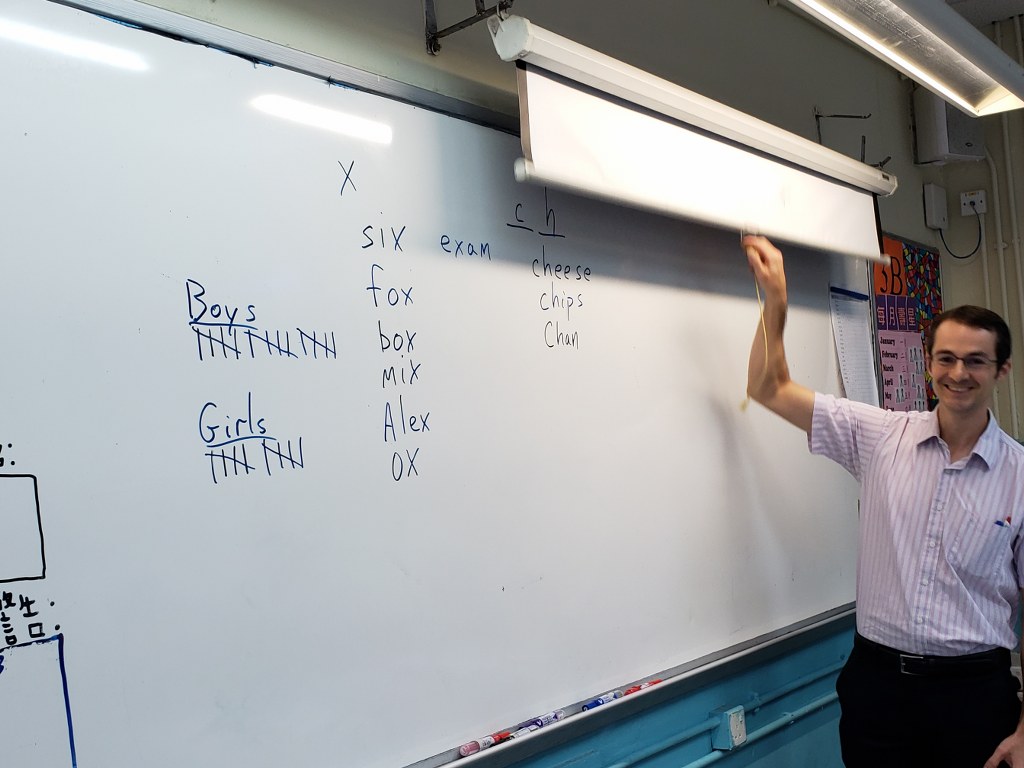 x
six exam
fox
box
mix
Alex
ox
c h
cheese
chips
Chan
Boys
Girls
3B
January
February
March
April
May